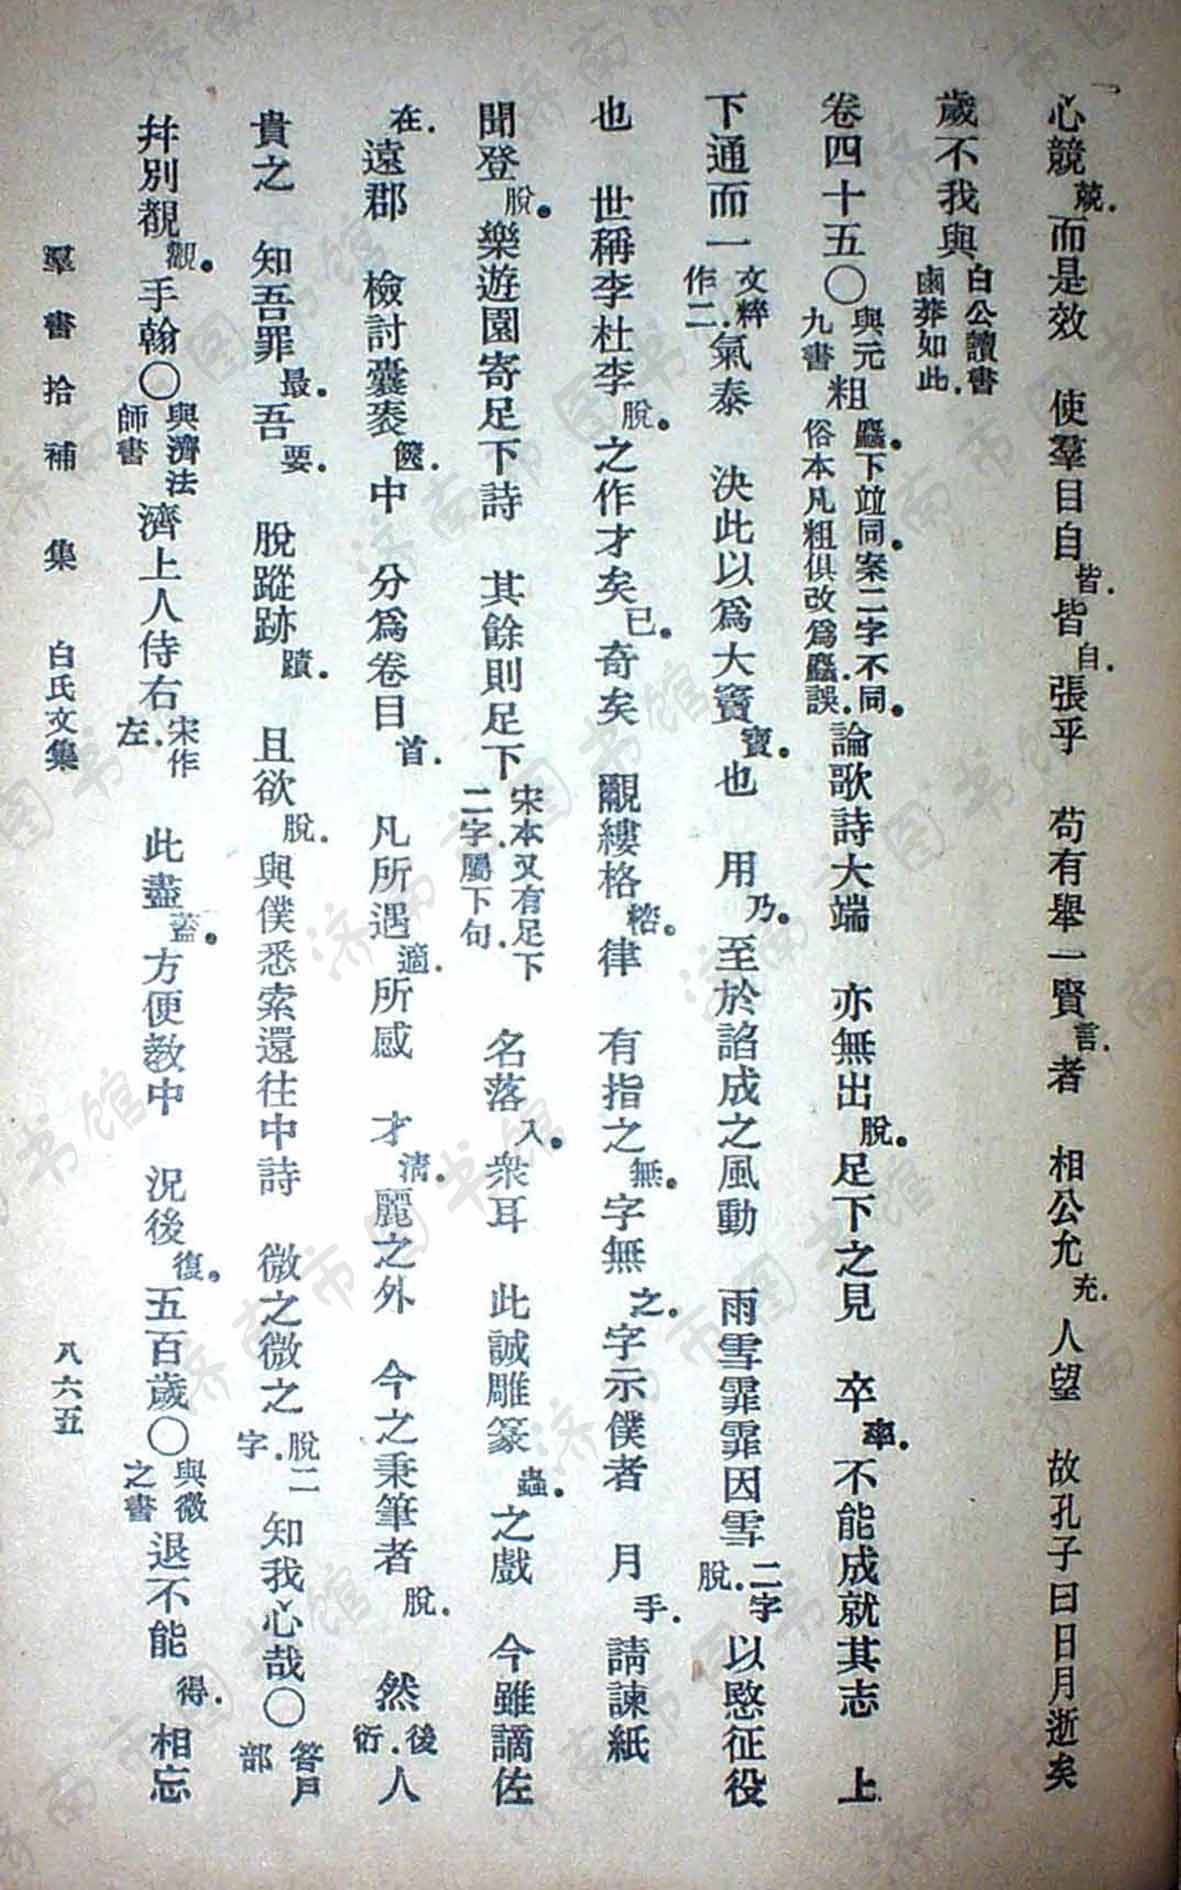 心競競.而是效　使羣目自皆.皆自.張乎　苟有舉一賢言.者　相公允充.人望　故孔子曰日月逝矣
歲不我與白公讀書鹵莽如此.
卷四十五〇與元九書粗麤.下竝同.案二字不同.俗本凡粗俱改爲麤.誤.論歌詩大端　亦無出脫.足下之見　卒率.不能成就其志　上
下通而一文粹作二.氣泰　決此以爲大竇寶.也　用乃.至於諂成之風動　雨雪霏霏因雪二字脫.以愍征役
也　世稱李杜李脫.之作才矣已.奇矣　覼縷格.律　有指之無.字無之.字示僕者　月手.請諫紙
聞登脫.樂遊園寄足下詩　其餘則足下宋本又有足下二字.屬下句.　名落入.衆耳　此誠雕篆蟲.之戲　今雖謫佐
在.遠郡　檢討囊袠篋.中　分爲卷目首.　凡所遇適.所感　才清.麗之外　今之秉筆者脫.　然後.衍人
貴之　知吾罪最.吾要.　脫蹤跡蹟.　且欲脫.與僕悉索還往中詩　微之微之脫二字.知我心哉〇答戶部
幷別覩觀.手翰〇與濟法師書　濟上人侍右宋作左.　此盡蓋.方便教中　況後復.五百歲〇與微之書退不能得.相忘
羣書拾補　集　白氏文集　八六五
济南市图书馆